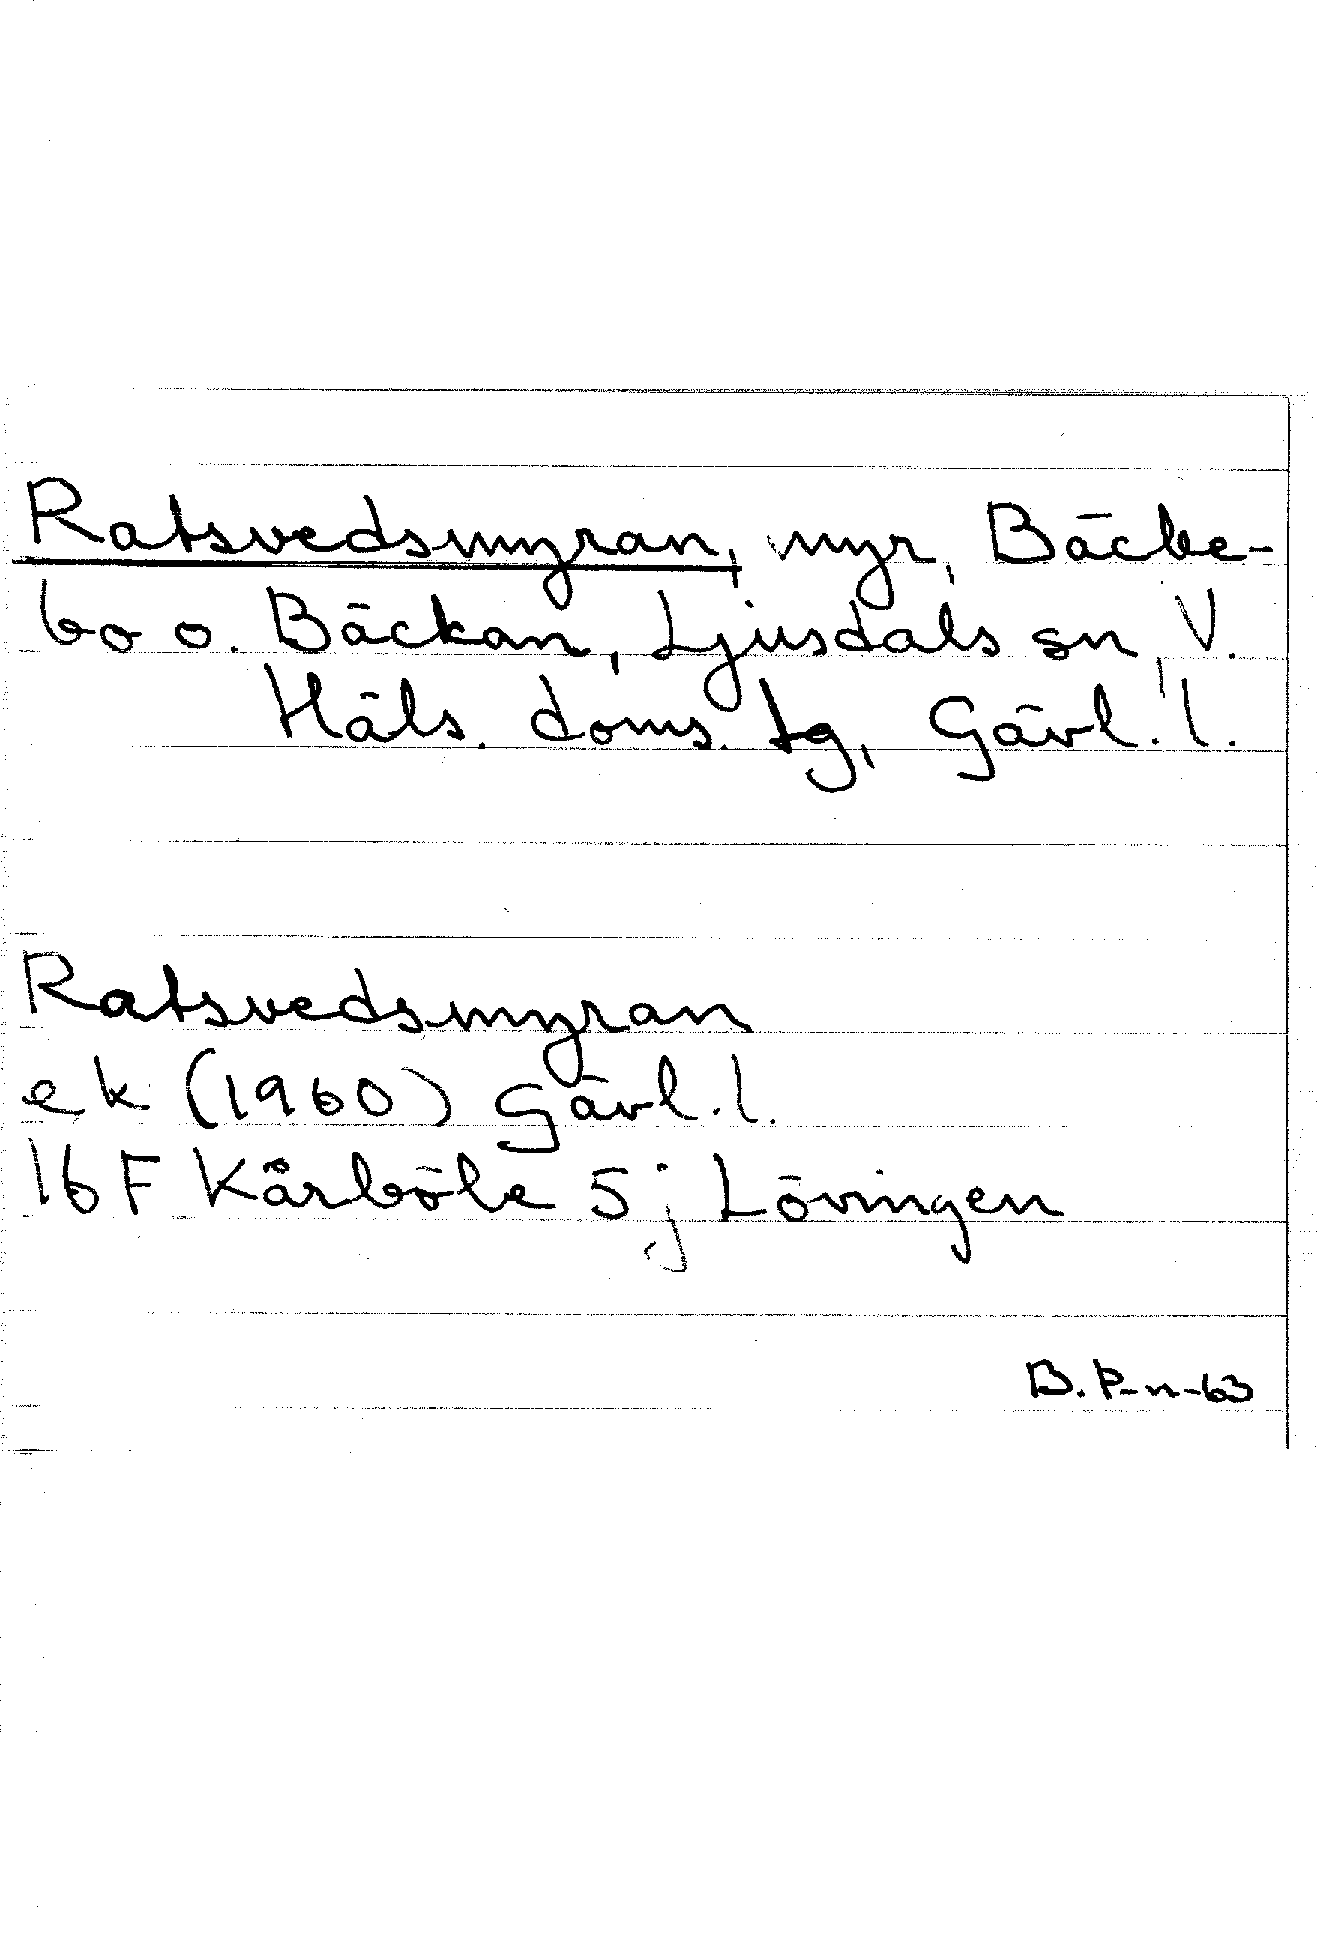 Ratsvedsmyran, myr, Bäcke-
bo o. Bäckan, Ljusdals sn, V.
Häls. doms. tg, Gävl. l.
Ratsvedsmyran
ek (1960) Gävl. l.
16 F Kårböle 5 j Lövingen
B. P-n-63